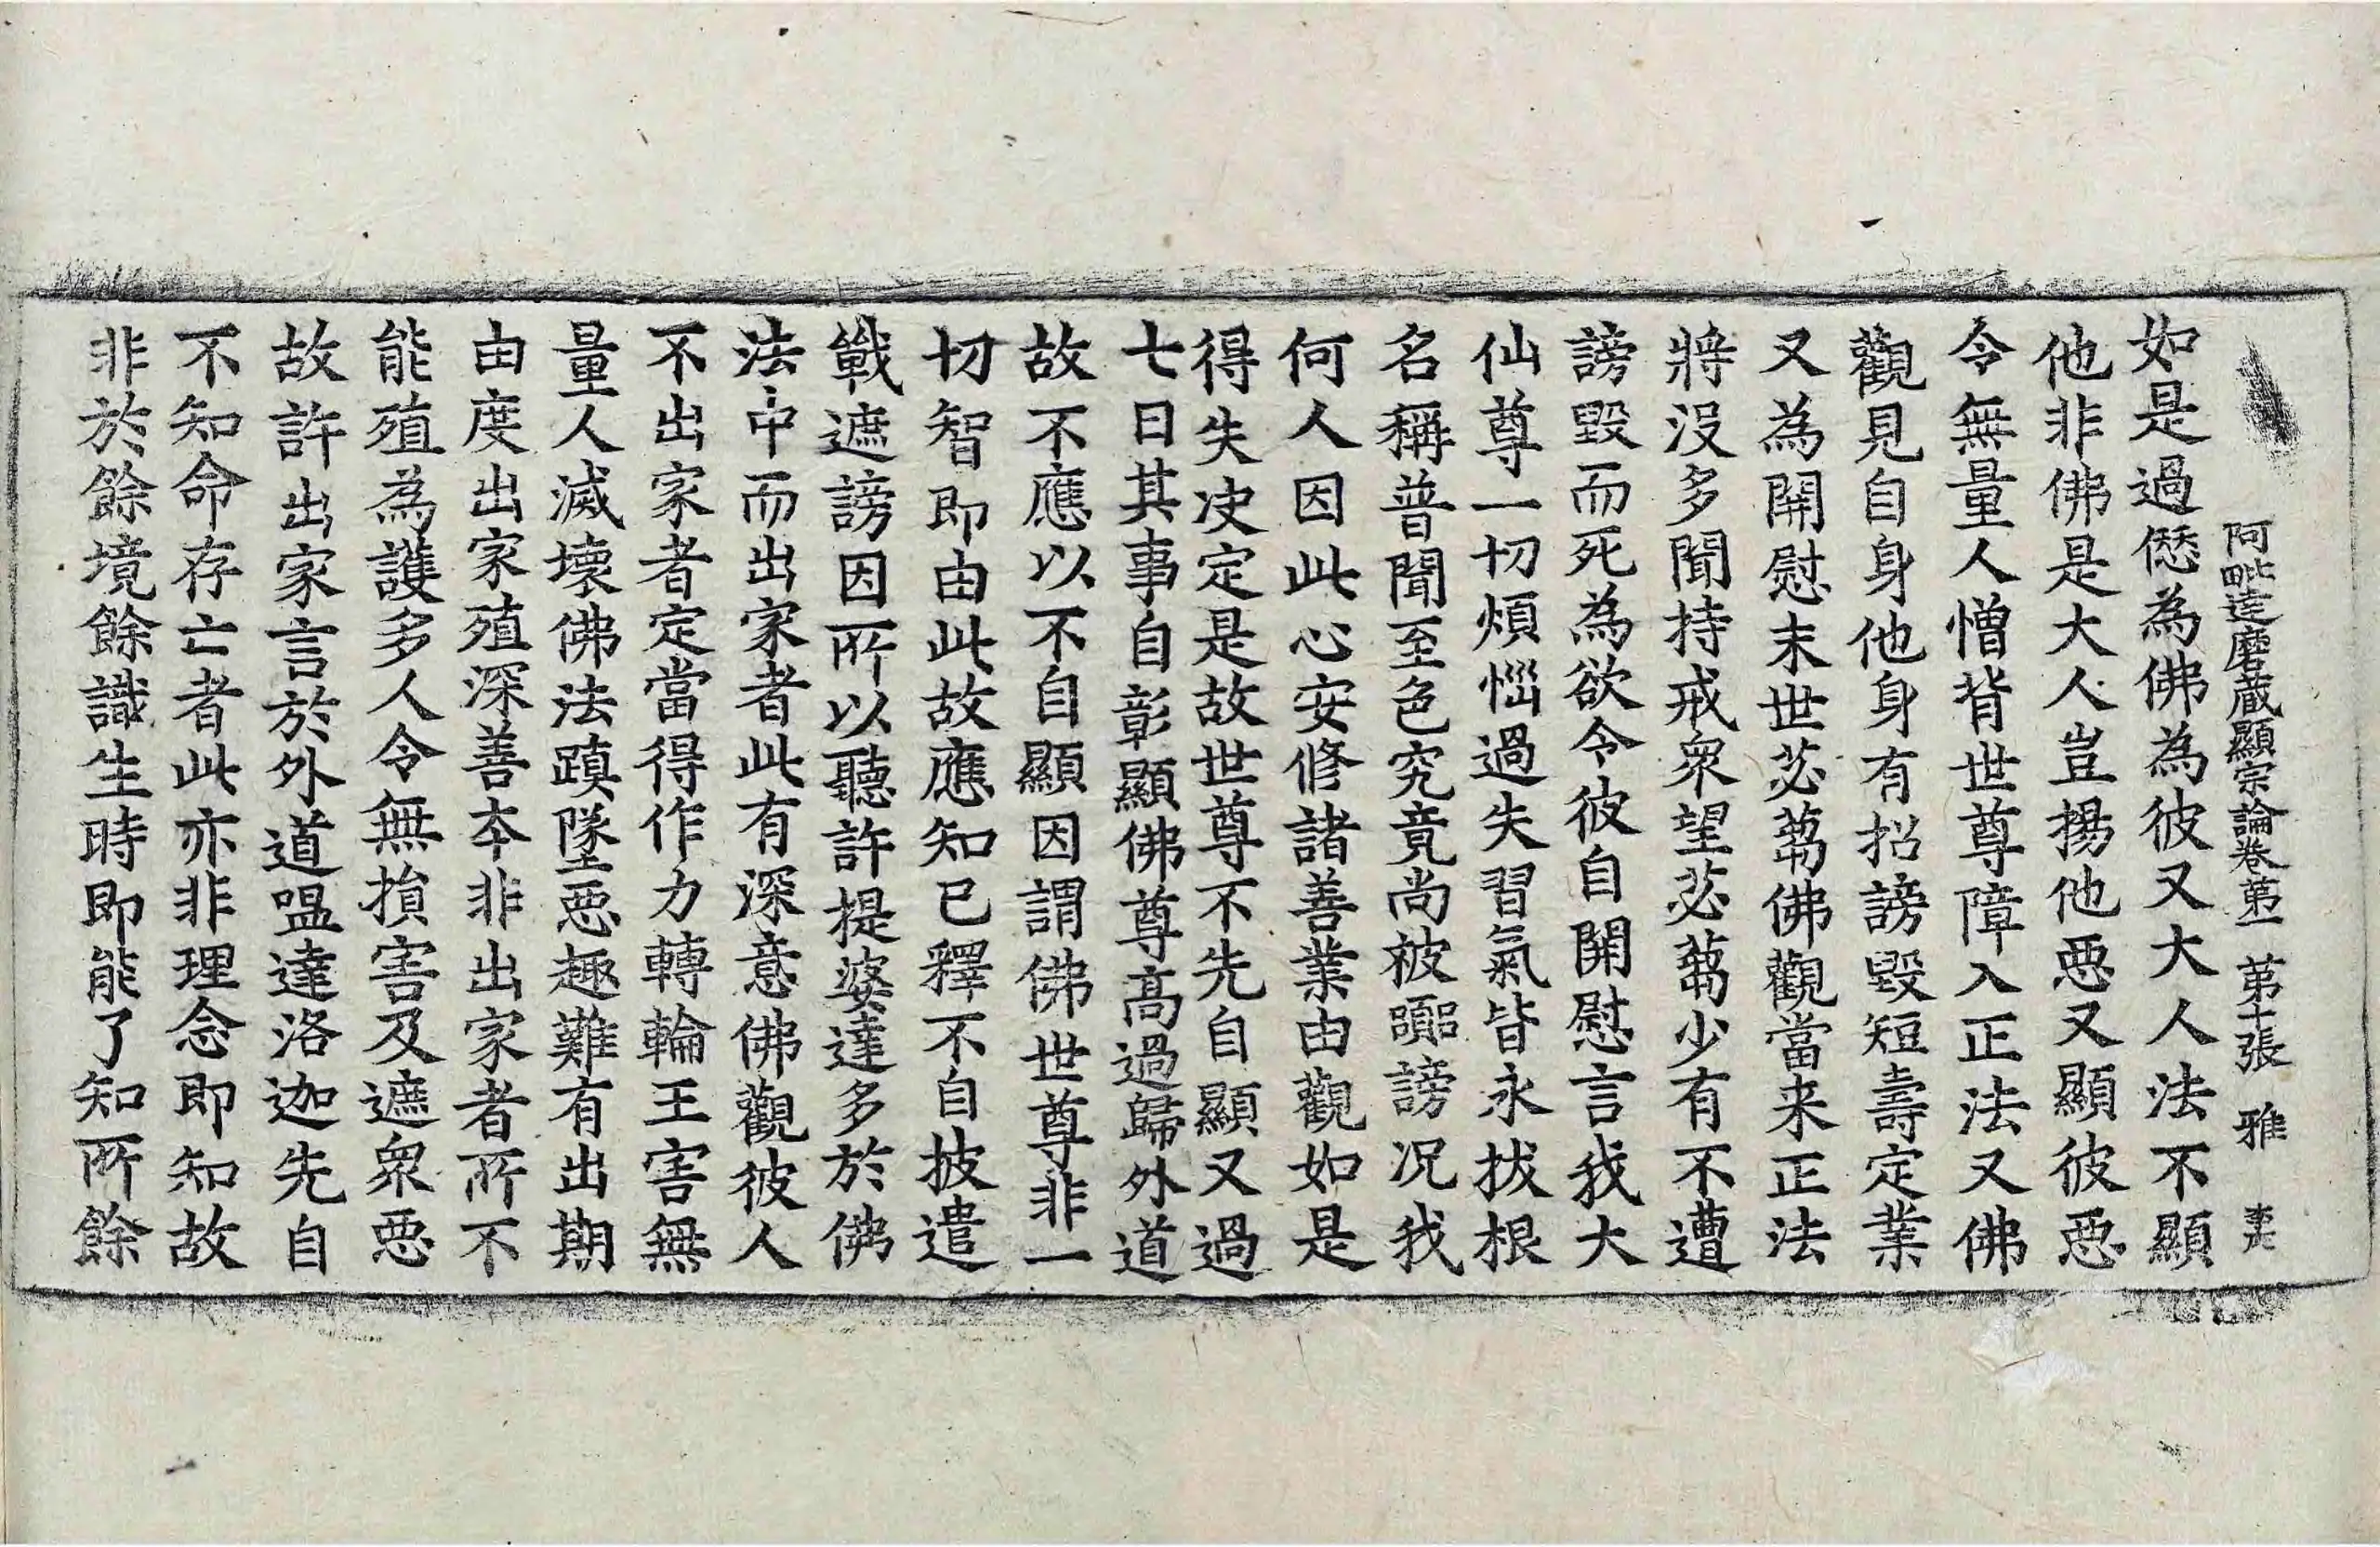 阿毗達磨藏顯宗論卷第一 第十張 雅
如是過愆為佛為彼又大人法不顯
他非佛是大人豈揚他惡又顯彼惡
令無量人憎背世尊障入正法又佛
觀見自身他身有招謗毀短壽定業
又為開慰末世苾蒭佛觀當来正法
將沒多聞持戒衆望苾蒭少有不遭
謗毀而死為欲令彼自開慰言我大
仙尊一切煩惱過失習氣皆永拔根
名稱普聞至色究竟尚被謗况我
何人因此心安修諸善業由觀如是
得失決定是故世尊不先自顯又過
七日其事自彰顯佛尊高過歸外道
故不應以不自顯因謂佛世尊非一
切智即由此故應知已釋不自披遣
戰遮謗因所以聽許提婆達多於佛
法中而出家者此有深意佛觀彼人
不出家者定當得作力轉輪王害無
量人滅壞佛法蹎墜惡趣難有出期
由度出家殖深善夲非出家者所不
能殖為護多人令無損害及遮衆惡
故許出家言於外道嗢達洛迦先自
不知命存亡者此亦非理念即知故
非於餘境餘識生時即能了知所餘